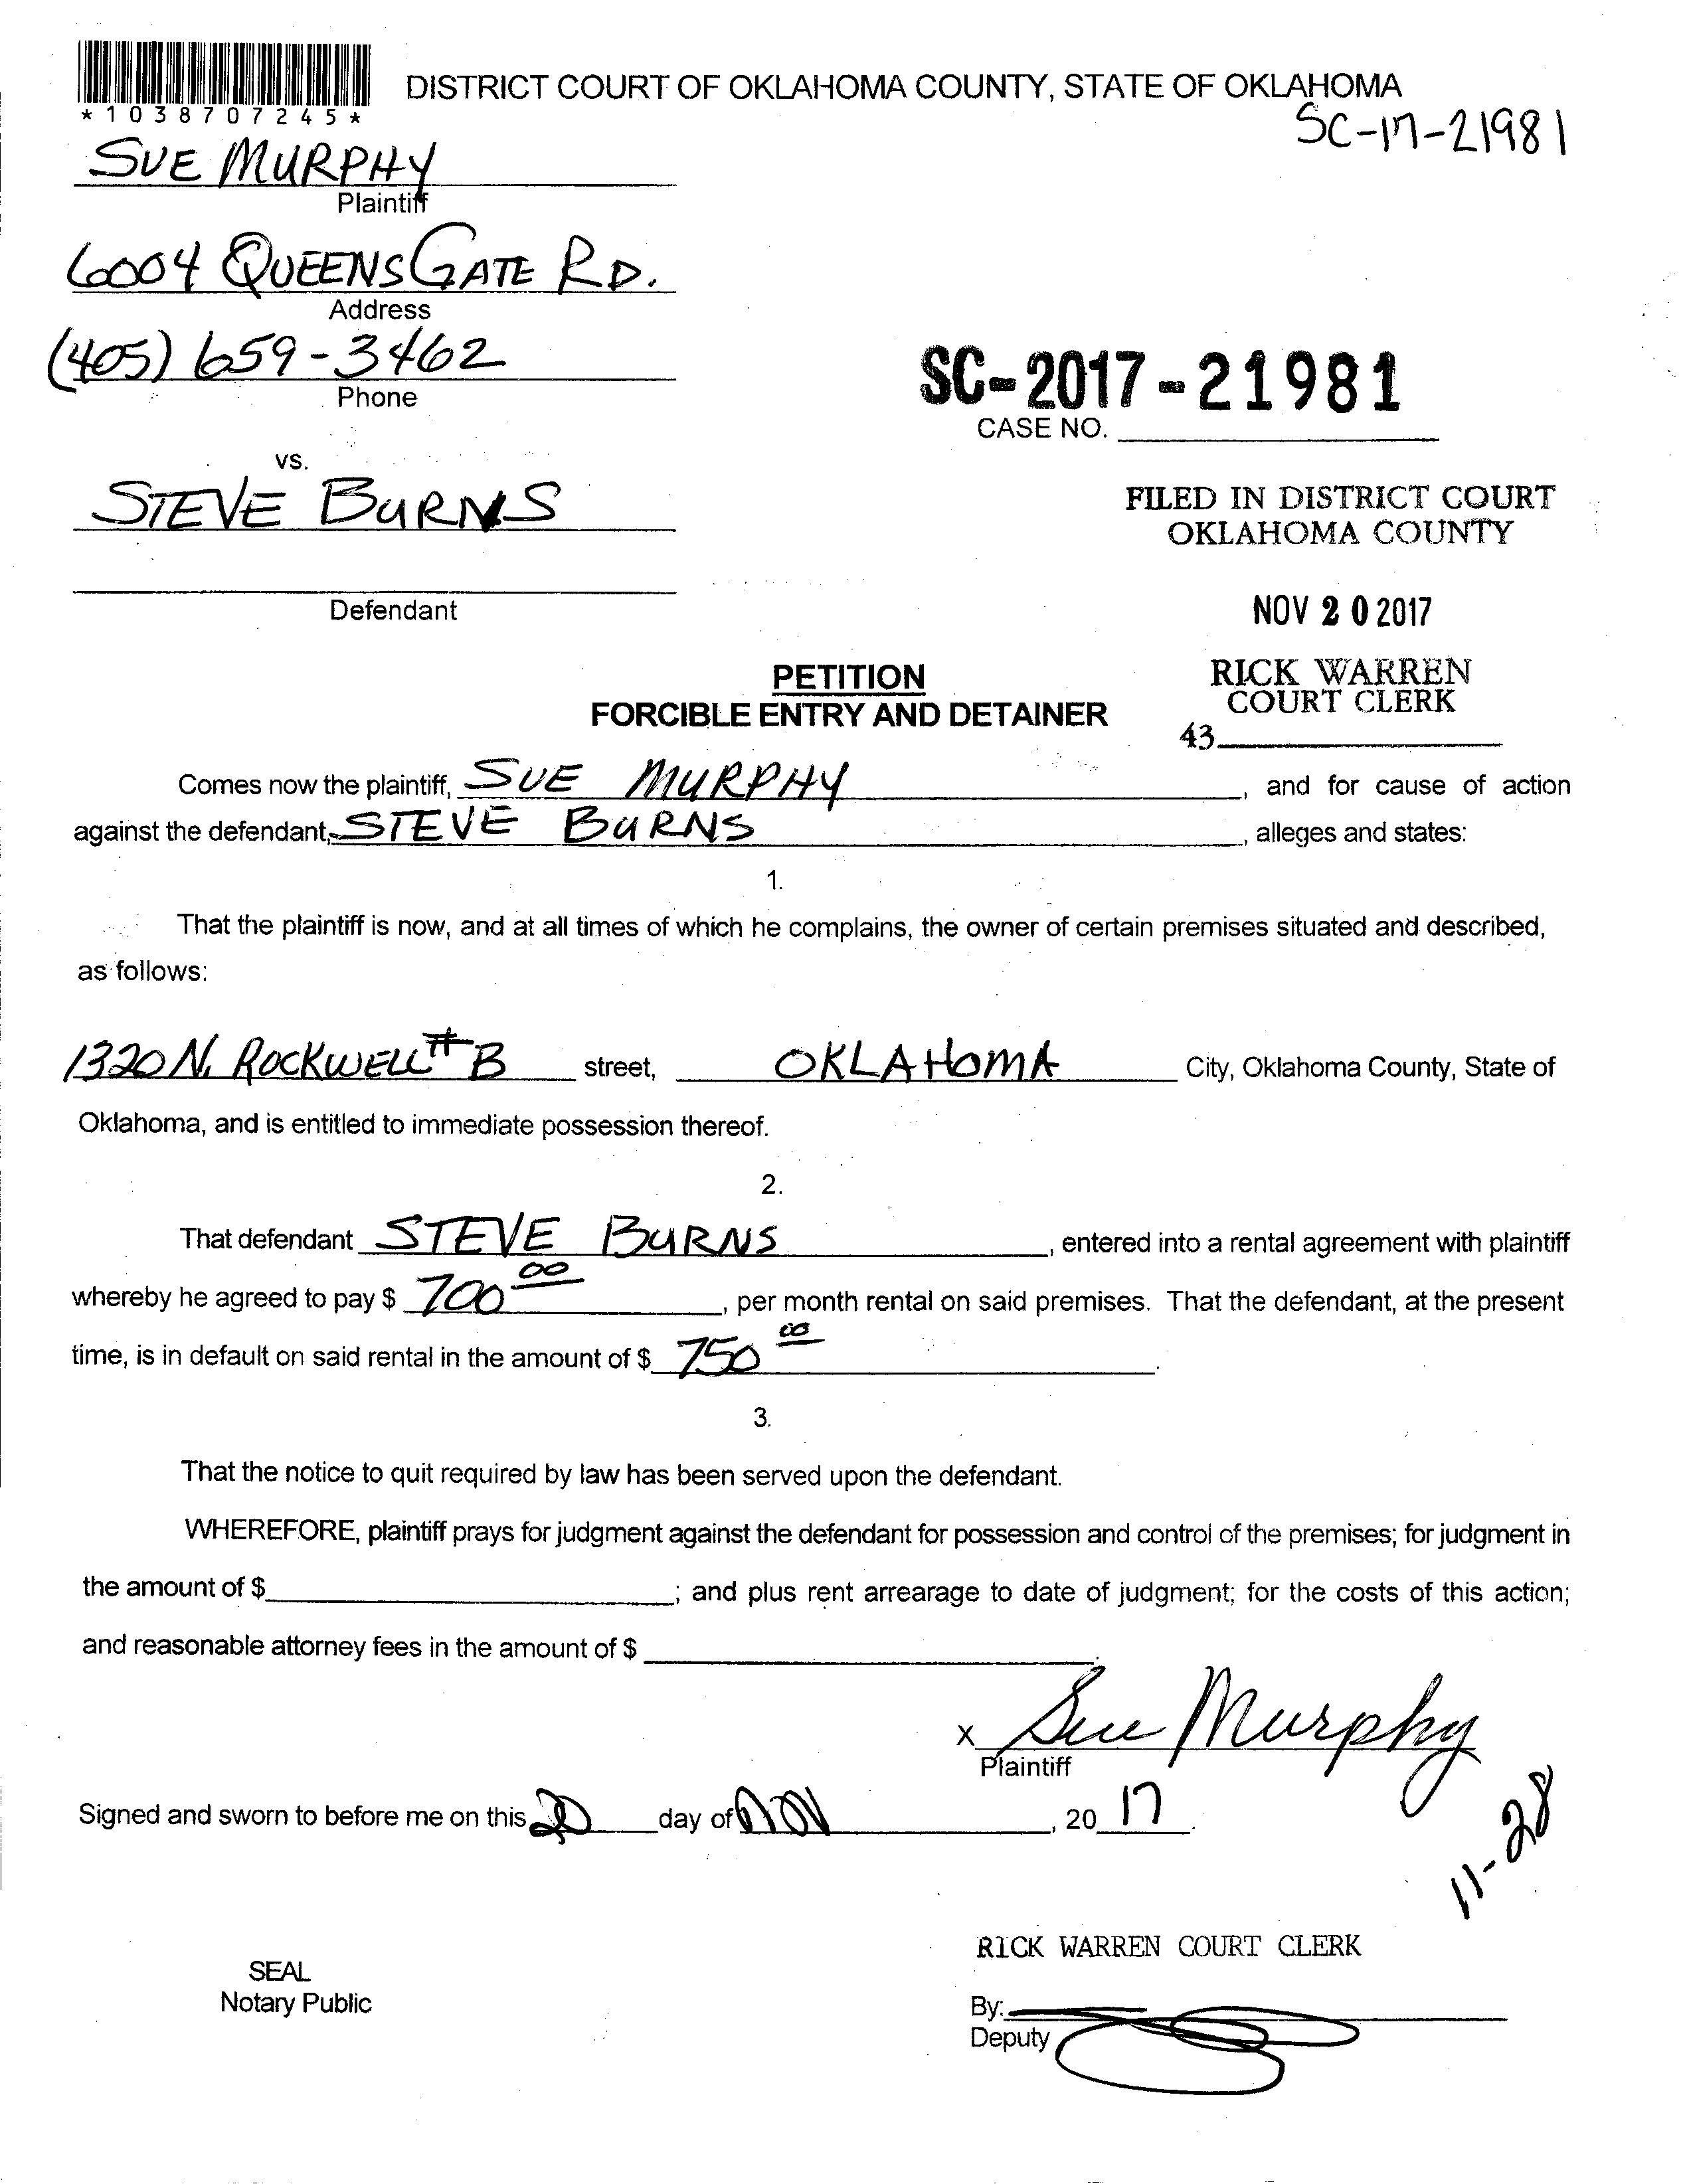 *1038707245*
DISTRICT COURT OF OKLAHOMA COUNTY, STATE OF OKLAHOMA
SC-17-21981
SUE MURPHY
Plaintiff
6004 QUEENSGATE RD.
Address
(405) 659-3462
Phone
SC-2017-21981
CASE NO.
vs.
STEVE BURNS
Defendant
FILED IN DISTRICT COURT
OKLAHOMA COUNTY
NOV 20 2017
RICK WARREN
COURT CLERK
43
PETITION
FORCIBLE ENTRY AND DETAINER
Comes now the plaintiff, SUE MURPHY, and for cause of action
against the defendant, STEVE BURNS, alleges and states:
1.
That the plaintiff is now, and at all times of which he complains, the owner of certain premises situated and described,
as follows:
1320 N. ROCKWELL #B street, OKLAHOMA City, Oklahoma County, State of
Oklahoma, and is entitled to immediate possession thereof.
2.
That defendant STEVE BURNS, entered into a rental agreement with plaintiff
whereby he agreed to pay $ 700 00, per month rental on said premises. That the defendant, at the present
time, is in default on said rental in the amount of $ 750 00.
3.
That the notice to quit required by law has been served upon the defendant.
WHEREFORE, plaintiff prays for judgment against the defendant for possession and control of the premises; for judgment in
the amount of $ ; and plus rent arrearage to date of judgment; for the costs of this action;
and reasonable attorney fees in the amount of $ .
X Sue Murphy
Plaintiff
Signed and sworn to before me on this 20 day of NOV, 20 17.
11-28
RICK WARREN COURT CLERK
SEAL
Notary Public
By:
Deputy